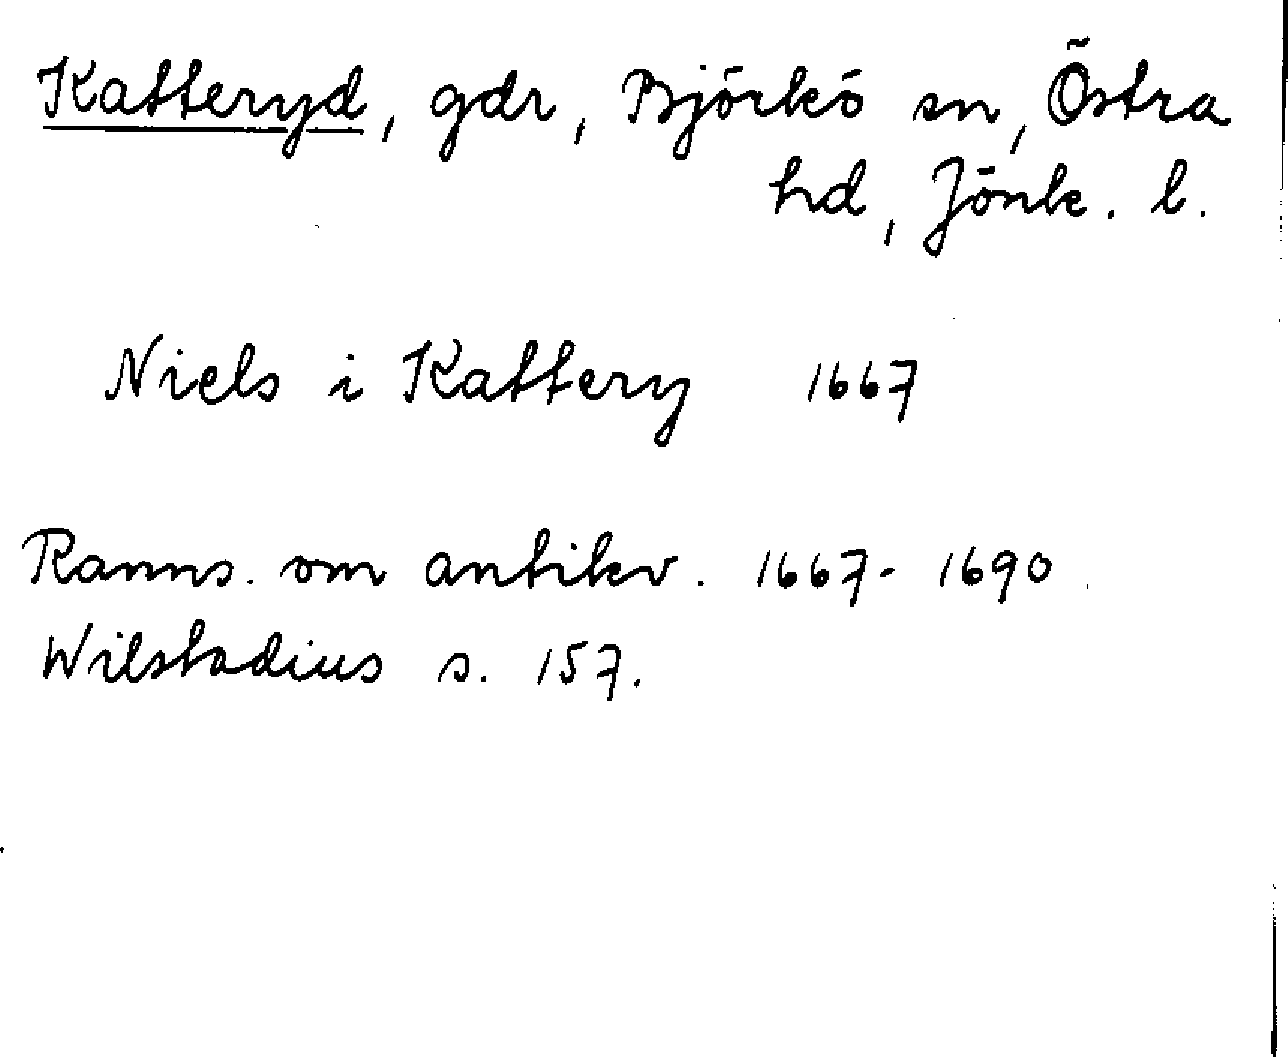 Katteryd, gdr, Björkö sn, Östra
hd, Jönk. l.
Niels i Kattery 1667
Ranns. om antikv. 1667-1690
Wilstadius s. 157.